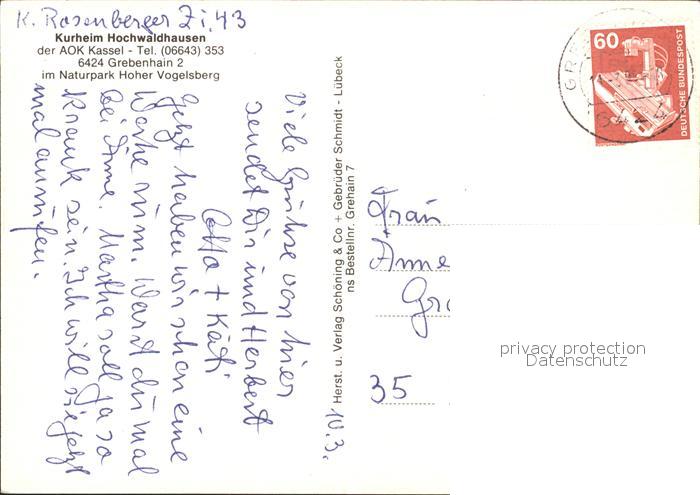 K. Rosenberger Zi. 43
Kurheim Hochwaldhausen
der AOK Kassel - Tel. (06643) 353
6424 Grebenhain 2
im Naturpark Hoher Vogelsberg
10.3.
Viele Grüße von hier
sendet Dir und Herbert
Otto + Käti
Jetzt haben wir schon eine
Woche rum. Warst du mal
bei Anne. Martha soll ja so
krank sein. Ich will sie jetzt
mal anrufen.
Herst. u. Verlag Schöning & Co + Gebrüder Schmidt - Lübeck
ns Bestellnr. Grehain 7
60
DEUTSCHE BUNDESPOST
Frau
Änne
35
privacy protection
Datenschutz